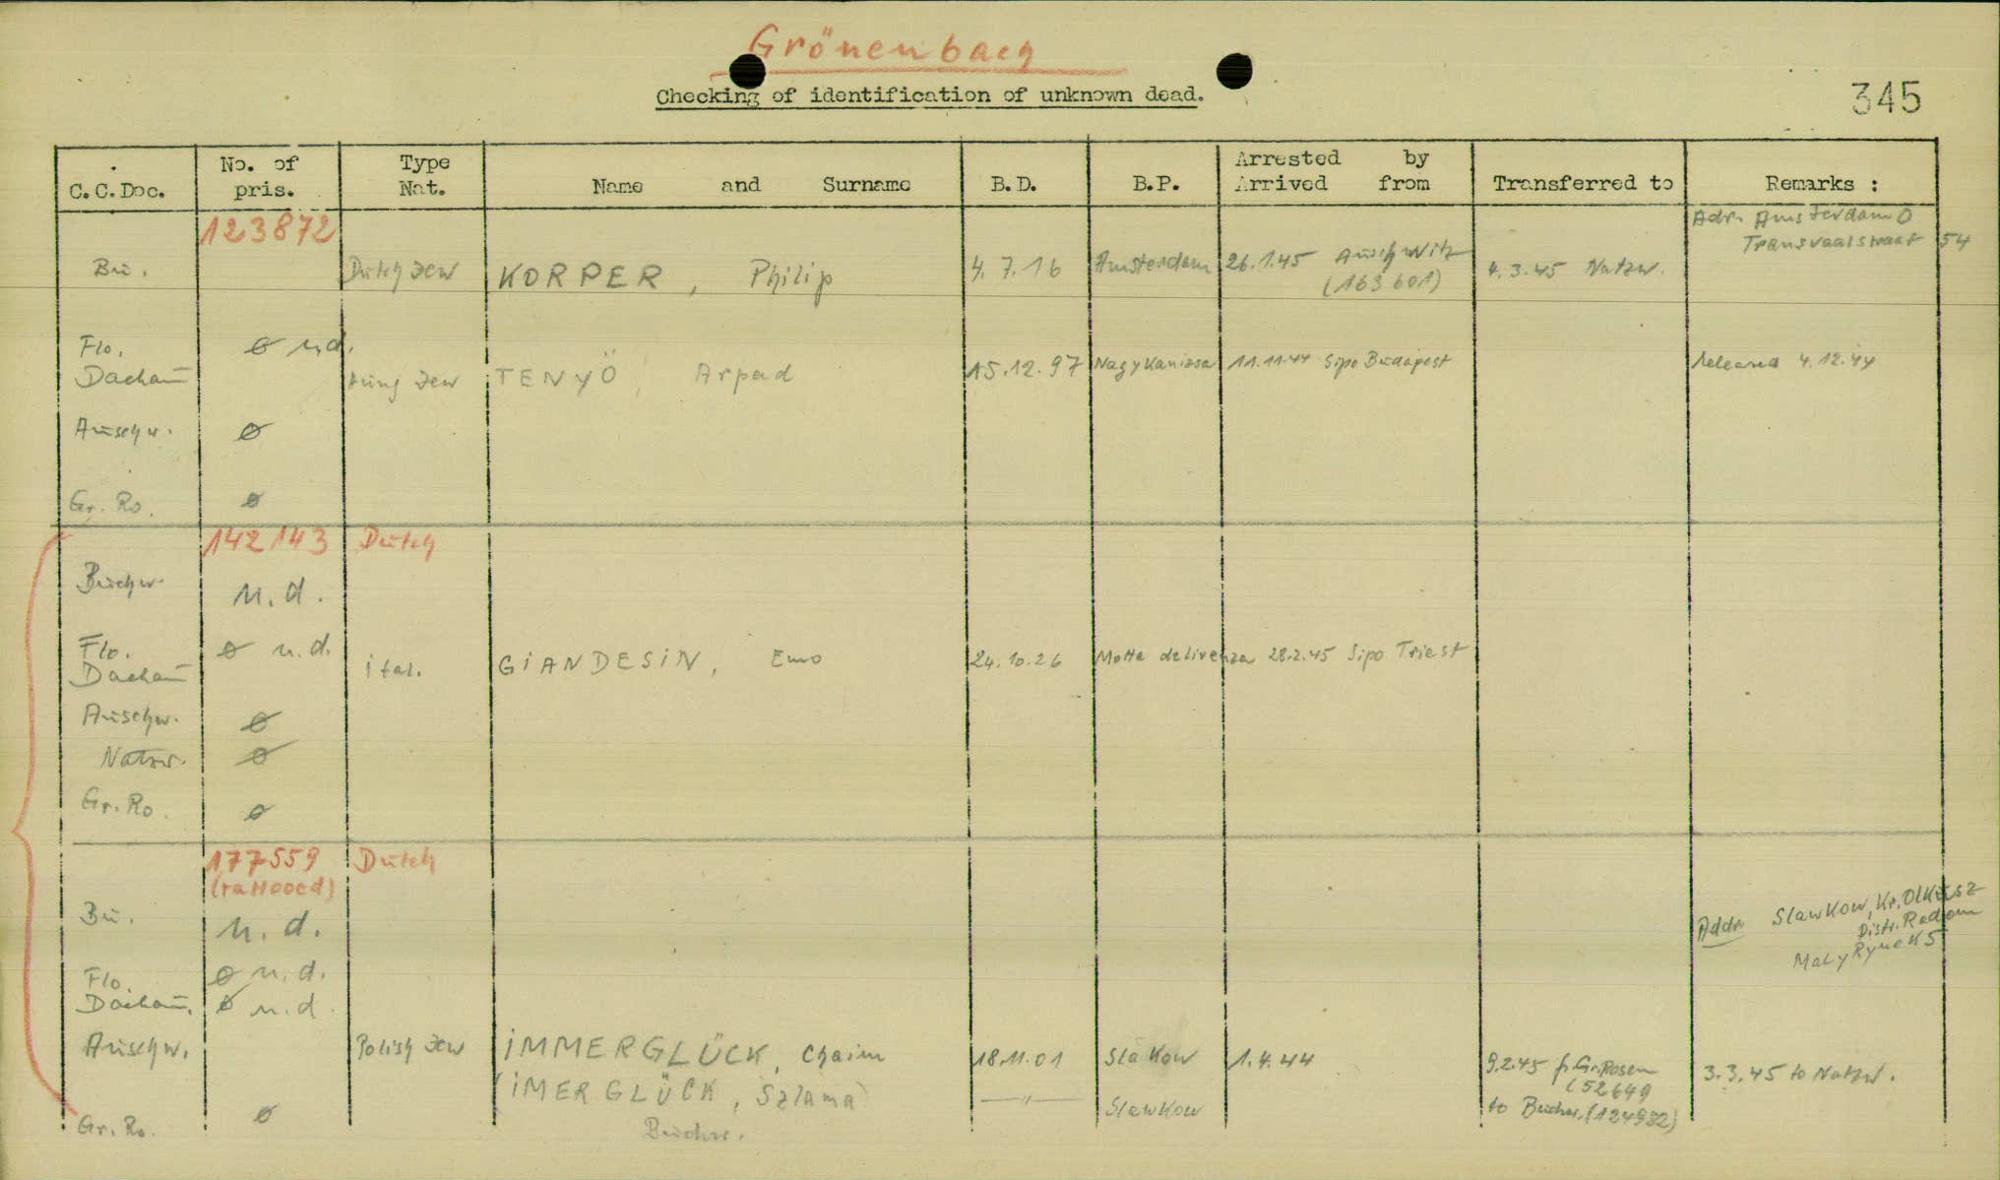 Grönenbach
Checking of identification of unknown dead.
345
C.C.Doc. No. of pris. Type Nat. Name and Surname B.D. B.P. Arrested by Arrived from Transferred to Remarks :
123872
Adr. Amsterdam O
Transvaalstraat 54
Bu. Dutch Jew KORPER, Philip 4.7.16 Amsterdam 26.1.45 Auschwitz 4.3.45 Natzw.
(163601)
Flo. ø n.d.
Dachau Hung Jew TENYÖ, Arpad 15.12.97 Nagykanizsa 11.11.44 Sipo Budapest released 4.12.44
Auschw. ø
Gr. Ro. ø
142143 Dutch
Buchw. n.d.
Flo. ø n.d.
Dachau ital. GIANDESIN, Emo 24.10.26 Motta delivenza 28.2.45 Sipo Triest
Auschw. ø
Natzw. ø
Gr. Ro. ø
177559 Dutch
(tattooed)
Bu. n.d.
Addr Slawkow, Kr. Olkusz
Distr. Radom
Maly Rynek 5
Flo. ø n.d.
Dachau. ø n.d.
Auschw. Polish Jew IMMERGLÜCK, Chaim 18.11.01 Slakow 1.4.44 9.2.45 f. Gr. Rosen 3.3.45 to Natzw.
(52649
(IMERGLÜCK, Szlama) —"— Slawkow to Buchw. (124982)
Gr. Ro. ø Buchw.